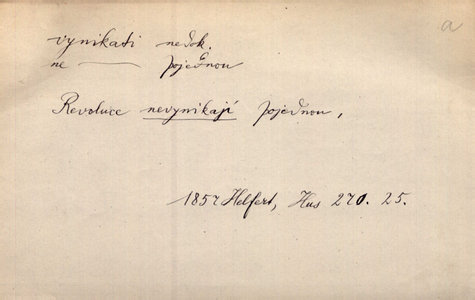 a
vynikati nedok.
ne — pojednou
Revoluce nevynikají pojednou,
1857 Helfert, Hus 270. 25.